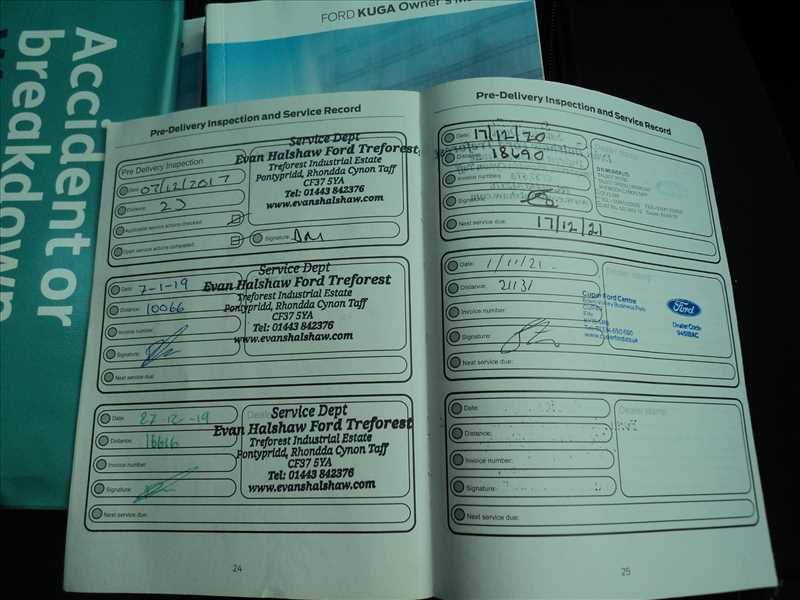 FORD KUGA Owner's
Accident or
breakdown
Pre-Delivery Inspection and Service Record
Pre Delivery Inspection
Date 07/12/2017
Distance:
Applicable service actions checked:
Open service actions completed:
Service Dept
Evan Halshaw Ford Treforest
Treforest Industrial Estate
Pontypridd, Rhondda Cynon Taff
CF37 5YA
Tel: 01443 842376
www.evanshalshaw.com
Signature:
Date: 7-1-19
Distance: 10066
Invoice number:
Signature:
Next service due:
Service Dept
Evan Halshaw Ford Treforest
Treforest Industrial Estate
Pontypridd, Rhondda Cynon Taff
CF37 5YA
Tel: 01443 842376
www.evanshalshaw.com
Date: 27-12-19
Distance: 16616
Invoice number:
Signature:
Next service due:
Service Dept
Evan Halshaw Ford Treforest
Treforest Industrial Estate
Pontypridd, Rhondda Cynon Taff
CF37 5YA
Tel: 01443 842376
www.evanshalshaw.com
24
Pre-Delivery Inspection and Service Record
Date: 17/12/20
Distance: 18690
Invoice number:
Signature:
Next service due: 17/12/21
Dealer stamp
Date: 1/11/21
Distance: 21131
Invoice number:
Signature:
Next service due:
Dealer stamp
Cupar Ford Centre
Ford
Dealer Code
Date:
Distance:
Invoice number:
Signature:
Next service due:
Dealer stamp
25